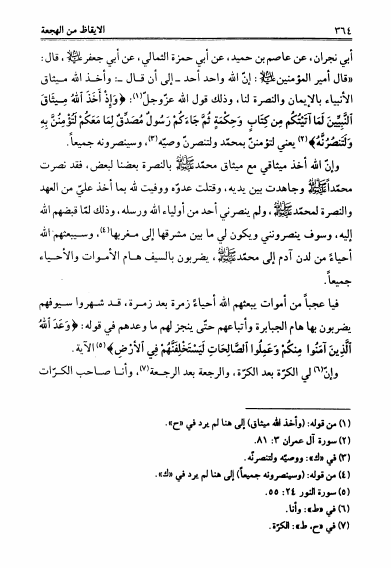 ٣٦٤ الايقاظ من الهجعة
أبي نجران، عن عاصم بن حميد، عن أبي حمزة الثمالي، عن أبي جعفر ﷺ، قال:
«قال أمير المؤمنين ﷺ: إنّ الله واحد أحد ـ إلى أن قال ـ: وأخذ الله ميثاق
الأنبياء بالإيمان والنصرة لنا، وذلك قول الله عزّ وجلّ(١): ﴿وَإِذْ أَخَذَ اللهُ مِيثَاقَ
النَّبِيِّينَ لَمَا آتَيْتُكُم مِن كِتَابٍ وَحِكْمَةٍ ثُمَّ جَاءَكُمْ رَسُولٌ مُصَدِّقٌ لِمَا مَعَكُمْ لَتُؤْمِنُنَّ بِهِ
وَلَتَنصُرُنَّهُ﴾(٢) يعني لتؤمننّ بمحمّد ولتنصرنّ وصيّه(٣)، وسينصرونه جميعاً.
وإنّ الله أخذ ميثاقي مع ميثاق محمّد ﷺ بالنصرة بعضنا لبعض، فقد نصرت
محمّداً ﷺ وجاهدت بين يديه، وقتلت عدوّه ووفيت لله بما أخذ عليّ من العهد
والنصرة لمحمّد ﷺ، ولم ينصرني أحد من أولياء الله ورسله، وذلك لمّا قبضهم الله
إليه، وسوف ينصرونني ويكون لي ما بين مشرقها إلى مغربها(٤)، وسيبعثهم الله
أحياءً من لدن آدم إلى محمّد ﷺ، يضربون بالسيف هام الأموات والأحياء
جميعاً.
فيا عجباً من أموات يبعثهم الله أحياءً زمرة بعد زمرة، قد شهروا سيوفهم
يضربون بها هام الجبابرة وأتباعهم حتّى ينجز لهم ما وعدهم في قوله: ﴿وَعَدَ اللهُ
الَّذِينَ آمَنُوا مِنكُمْ وَعَمِلُوا الصَّالِحَاتِ لَيَسْتَخْلِفَنَّهُمْ فِي الْأَرْضِ﴾(٥) الآية.
وإنّ(٦) لي الكرّة بعد الكرّة، والرجعة بعد الرجعة(٧)، وأنا صاحب الكرّات
(١) من قوله: (وأخذ لله ميثاق) إلى هنا لم يرد في «ح».
(٢) سورة آل عمران ٣: ٨١.
(٣) في «ك»: ووصيّه ولتنصرنّه.
(٤) من قوله: (وسينصرونه جميعاً) إلى هنا لم يرد في «ك».
(٥) سورة النور ٢٤: ٥٥.
(٦) في «ط»: وأنا.
(٧) في «ح، ط»: الكرّة.